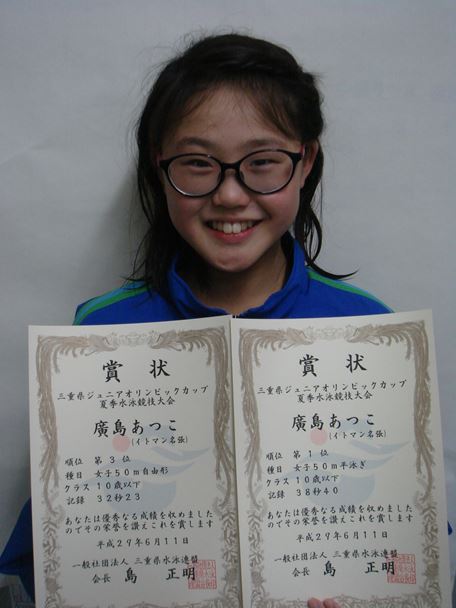 賞状
三重県ジュニアオリンピックカップ
夏季水泳競技大会
廣島あつこ
(イトマン名張)
順位 第3位
種目 女子50m自由形
クラス 10歳以下
記録 32秒23
あなたは優秀なる成績を収めました
のでその栄誉を讃えこれを賞します
平成29年6月11日
一般社団法人 三重県水泳連盟
会長 島 正明
賞状
三重県ジュニアオリンピックカップ
夏季水泳競技大会
廣島あつこ
(イトマン名張)
順位 第1位
種目 女子50m平泳ぎ
クラス 10歳以下
記録 38秒40
あなたは優秀なる成績を収めました
のでその栄誉を讃えこれを賞します
平成29年6月11日
一般社団法人 三重県水泳連盟
会長 島 正明